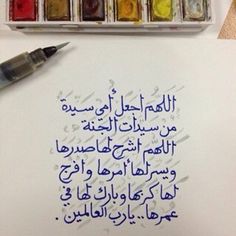 اللهم اجعل أمي سيدة
من سيدات الجنة
اللهم اشرح لها صدرها
ويسر لها أمرها وافرج
لها كربها وبارك لها في
عمرها.. يارب العالمين.